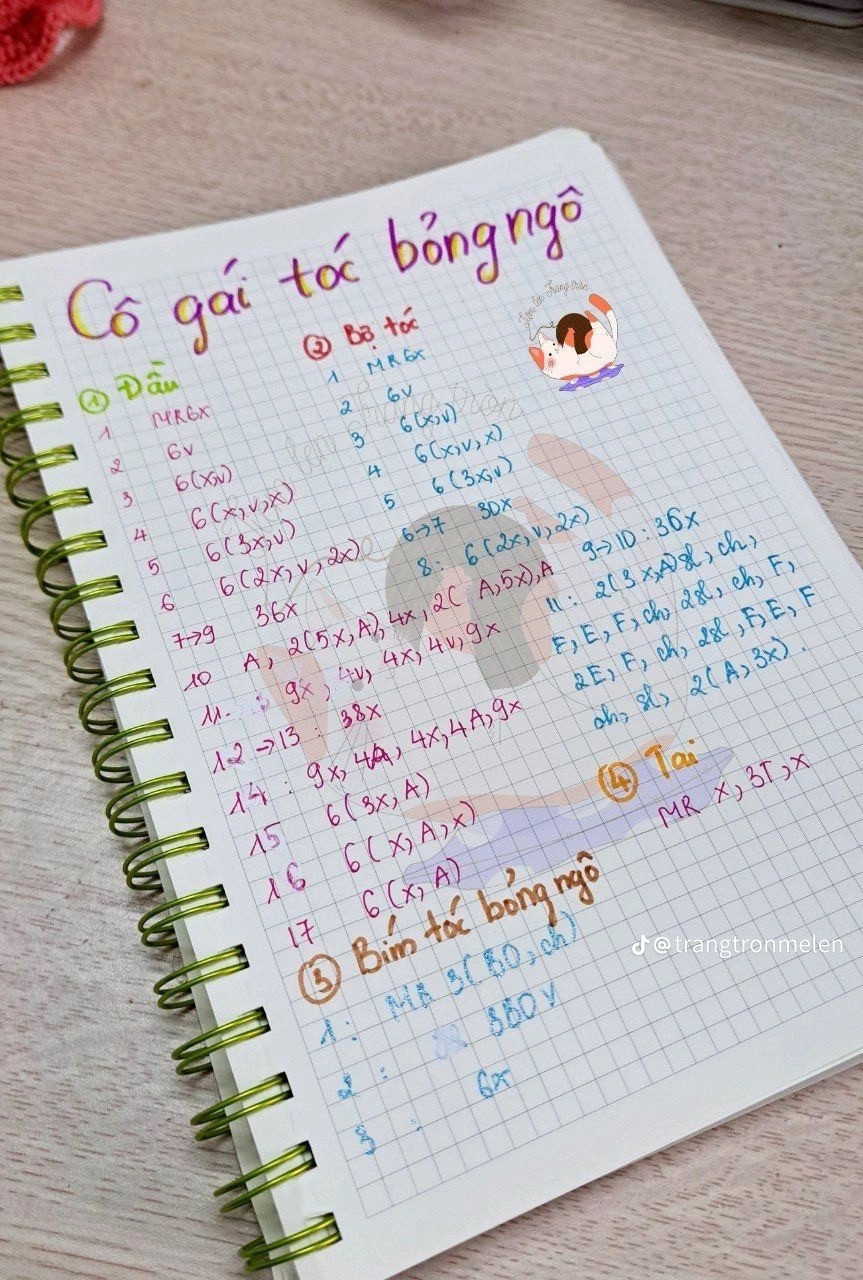 Cô gái tóc bỏng ngô
Tiệm len Trang tròn
① Đầu
1 MR6x
2 6v
3 6(x,v)
4 6(x,v,x)
5 6(3x,v)
6 6(2x,v,2x)
7→9 36x
10 A, 2(5x,A), 4x, 2(A,5x),A
11. 9x, 4v, 4x, 4v, 9x
12→13 : 38x
14 : 9x, 4A, 4x, 4A, 9x
15 6(3x,A)
16 6(x,A,x)
17 6(x,A)
② Bộ tóc
1 MR6x
2 6v
3 6(x,v)
4 6(x,v,x)
5 6(3x,v)
6→7 30x
8: 6(2x,v,2x)
9→10 : 36x
11: 2(3x,A) sl, ch,
F, E, F, ch, 2sl, ch, F,
2E, F, ch, 2sl, F, E, F
ch, sl, 2(A,3x).
③ Bím tóc bỏng ngô
1: MR 3(BO, ch)
2: 3BOV
3: 6x
④ Tai
MR x, 3T, x
len Trang tròn
@trangtronmelen